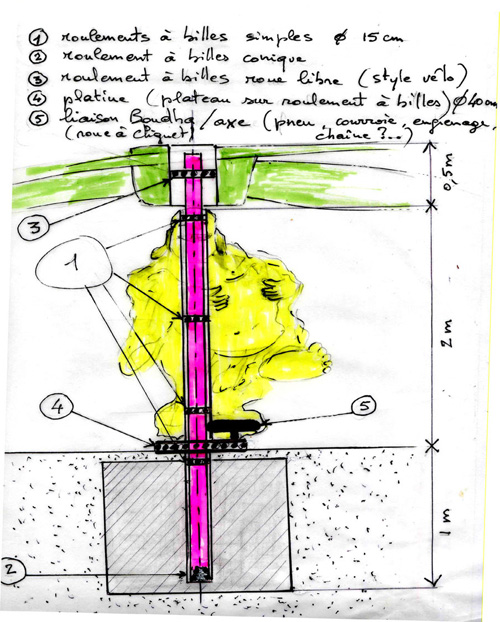 ① roulements à billes simples ϕ 15 cm
② roulement à billes conique
③ roulement à billes roue libre (style vélo)
④ platine (plateau sur roulement à billes) ϕ 40 cm
⑤ liaison Boudha/axe (pneu, courroie, engrenage,
(roue à cliquet) chaîne ?..)
0,5 m
3
1
2 m
4
5
1 m
2